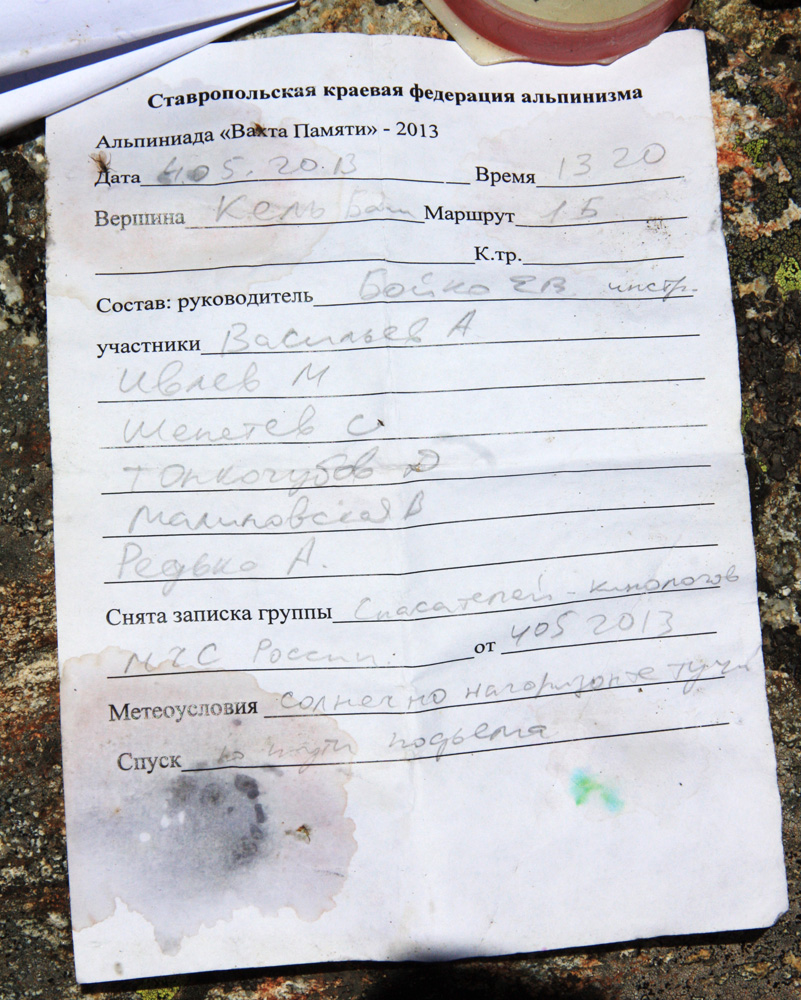 Ставропольская краевая федерация альпинизма
Альпиниада «Вахта Памяти» - 2013
Дата 4.05.2013 Время 13 20
Вершина Кель Баш Маршрут 1Б
К.тр.
Состав: руководитель Бойко Е.В. инстр.
участники Васильев А
Ивлев М
Шепетев С.
Топкочубов Д
Малиновская В
Редько А.
Снята записка группы Спасателей - кинологов
МЧС России. от 4 05 2013
Метеоусловия солнечно на горизонте тучи
Спуск по пути подъема